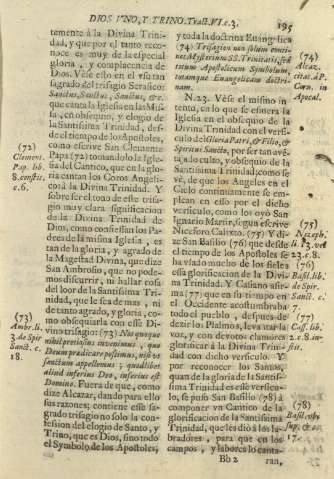 DIOS VNO, Y TRINO. Tract. VI. c. 3.
195
temente à la Divina Trini-
dad, y que por el tanto reco-
noce es muy de la especial
gloria, y complacencia de
Dios. Vése esto en el vsar tan
sagrado del trisagio Serafico:
Sanctus, Sanctus, Sanctus, &c.
que canta la Iglesia en las Missas,
en obsequio, y elogio de
la Santissima Trinidad, des-
de el tiempo de los Apostoles,
como escrive San Clemente
Papa (72) tomandolo la Igle-
sia del Cantico, que en la glo-
ria cantan los Coros Angeli-
cos à la Divina Trinidad. Y
sobre ser el tono de este trisa-
gio muy clara significacion
de la Divina Trinidad de
Dios, como confiessan los Pa-
dres de la misma Iglesia, es
tan de la gloria, y agrado de
la Magestad Divina, que dize
San Ambrosio, que no pode-
mos discurrir, ni hallar cosa
del loor de la Santissima Tri-
nidad, que le sea de mas
de tanto agrado, y gloria, co-
mo obsequiarla con este Di-
vino trisagio: (73) Neque quoque
nihil pretiosius invenimus, quo
Deum prædicare possimus, nisi vt
sanctum appellemus; quodlibet
aliud inferius Deo, inferius est
Domino. Fuera de que, como
dize Alcazar, dando para ello
sus razones; contiene este sa-
grado trisagio no solo la con-
fession del elogio de Santo, y
Trino, que es Dios, sino todo
el Symbolo de los Apostoles,
(72)
Clement.
Pap. lib.
8. constit.
c. 6.
(73)
Ambr. li.
3. de Spir.
Sanct. c.
18.
y toda la doctrina Euangelica
(74) Trisagion non solum conti-
net Mysterium SS. Trinitatis, sed
totum Apostolicum Symbolum,
totamque Euangelicam doctri-
nam.
N. 23. Vése el mismo in-
tento, en lo que se esmera la
Iglesia en el obsequio de la
Divina Trinidad con el versi-
culo de Gloria Patri, & Filio, &
Spiritui Sancto, por ser tan avẽta-
jado culto, y obsequio de la
Santissima Trinidad; como se
vé, de que los Angeles en el
Cielo continuamente se em-
plean en esso por el dicho
versiculo, como los oyò San
Ignacio Martir, segun escrive
Niceforo Calixto. (75) Y di-
ze San Basilio (76) que desde
el tiempo de los Apostoles se
ha vsado mucho de los fieles
essa glorificacion de la Divi-
na Trinidad. Y Casiano afir-
ma: (77) que en su tiempo en
el Occidente acostumbrava
todo el pueblo, despues de
dezir los Psalmos, levantar la
voz, y con devotos clamores
glorificar à la Divina Trini-
dad con dicho versiculo. Y
por reconocer los Santos,
quan de la gloria de la Santissi-
ma Trinidad es este versicu-
lo, se puso San Basilio (78) à
componer vn Cantico de la
glorificacion de la Santissima
Trinidad, que les diò à los la-
bradores, para que en los
campos, y labores lo canta-
(74)
Alcaz.
citat. à P.
Corn. in
Apocal.
(75)
Niceph.
li. 13. vel
22. c. 8.
(76)
Basil. lib.
de Spir.
Sanct. c.
(77)
Cass. lib.
2. c. 8. in-
stit.
(78)
Basil. vbi
sup. c.
17.
Bb 2
ran,